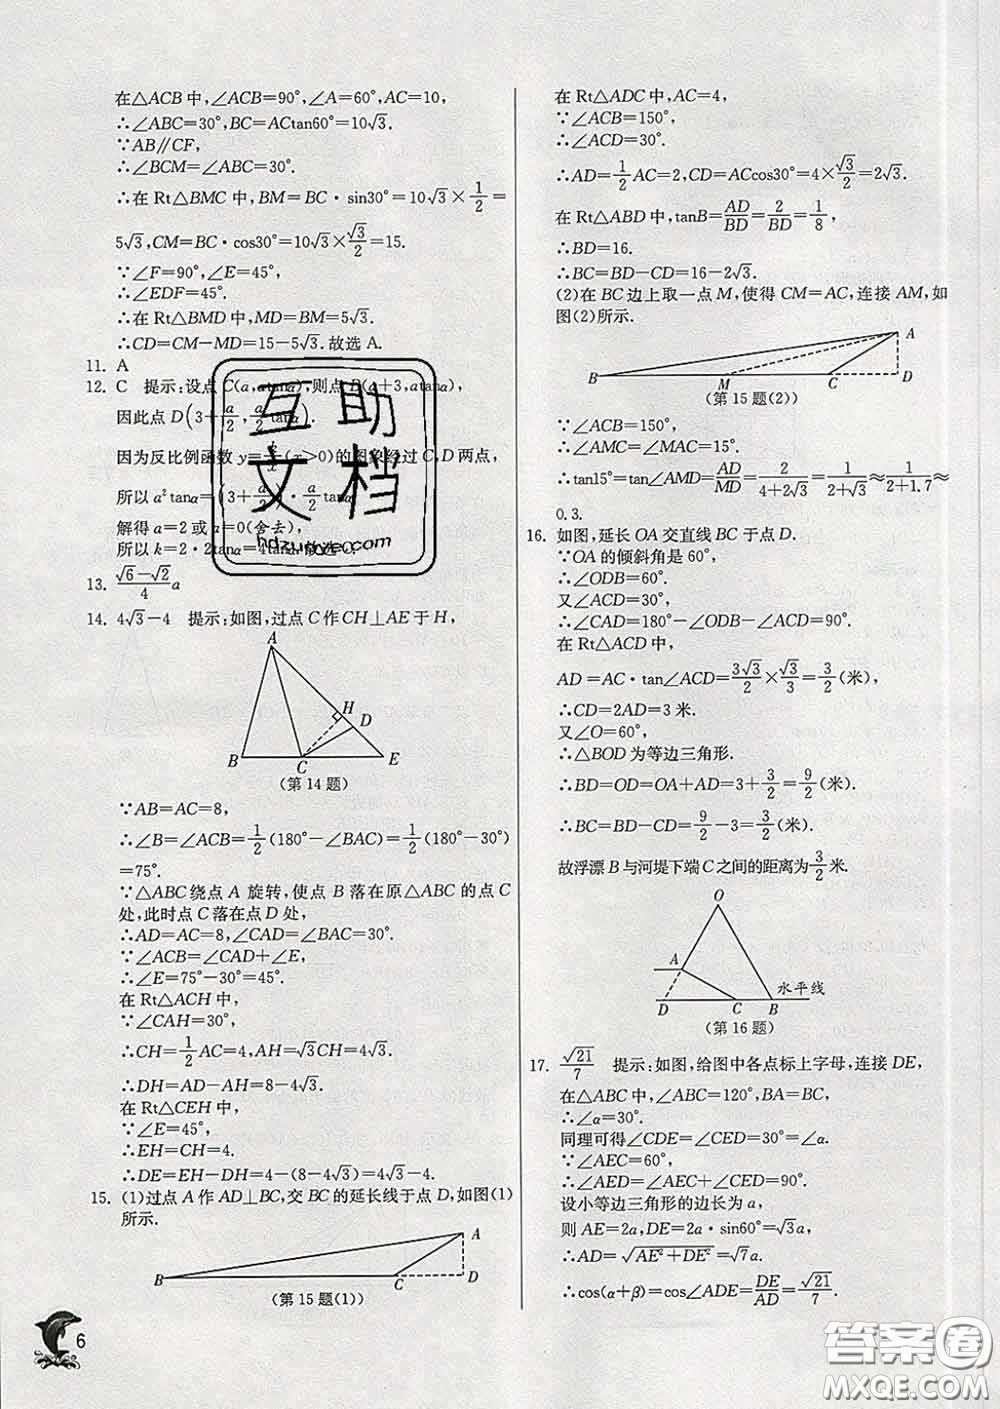 在△ACB中,∠ACB=90°,∠A=60°,AC=10,
∴∠ABC=30°,BC=ACtan60°=10√3.
∵AB∥CF,
∴∠BCM=∠ABC=30°.
∴在Rt△BMC中,BM=BC·sin30°=10√3×1/2=
5√3,CM=BC·cos30°=10√3×√3/2=15.
∵∠F=90°,∠E=45°,
∴∠EDF=45°.
∴在Rt△BMD中,MD=BM=5√3.
∴CD=CM-MD=15-5√3.故选A.
11. A
12. C 提示:设点C(a,atanα),则点B(a+3,atanα),
因此点D(3+a/2,a/2 tanα).
因为反比例函数y=k/x(x>0)的图象经过C,D两点,
所以a²tanα=(3+a/2)·a/2 tanα
解得a=2或a=0(舍去),
所以k=2·2tanα=4tanα.
13. (√6-√2)/4 a
14. 4√3-4 提示:如图,过点C作CH⊥AE于H,
A
H
D
B
C
E
(第14题)
∵AB=AC=8,
∴∠B=∠ACB=1/2(180°-∠BAC)=1/2(180°-30°)
=75°.
∵△ABC绕点A旋转,使点B落在原△ABC的点C
处,此时点C落在点D处,
∴AD=AC=8,∠CAD=∠BAC=30°.
∵∠ACB=∠CAD+∠E,
∴∠E=75°-30°=45°.
在Rt△ACH中,
∵∠CAH=30°,
∴CH=1/2AC=4,AH=√3CH=4√3.
∴DH=AD-AH=8-4√3.
在Rt△CEH中,
∵∠E=45°,
∴EH=CH=4.
∴DE=EH-DH=4-(8-4√3)=4√3-4.
15. (1)过点A作AD⊥BC,交BC的延长线于点D,如图(1)
所示.
A
B
C
D
(第15题(1))
6
在Rt△ADC中,AC=4,
∵∠ACB=150°,
∴∠ACD=30°.
∴AD=1/2AC=2,CD=ACcos30°=4×√3/2=2√3.
在Rt△ABD中,tanB=AD/BD=2/BD=1/8,
∴BD=16.
∴BC=BD-CD=16-2√3.
(2)在BC边上取一点M,使得CM=AC,连接AM,如
图(2)所示.
A
B
M
C
D
(第15题(2))
∵∠ACB=150°,
∴∠AMC=∠MAC=15°.
∴tan15°=tan∠AMD=AD/MD=2/(4+2√3)=1/(2+√3)≈1/(2+1.7)≈
0.3.
16. 如图,延长OA交直线BC于点D.
∵OA的倾斜角是60°,
∴∠ODB=60°.
又∠ACD=30°,
∴∠CAD=180°-∠ODB-∠ACD=90°.
在Rt△ACD中,
AD=AC·tan∠ACD=3√3/2×√3/3=3/2(米),
∴CD=2AD=3米.
又∠O=60°,
∴△BOD为等边三角形.
∴BD=OD=OA+AD=3+3/2=9/2(米).
∴BC=BD-CD=9/2-3=3/2(米).
故浮漂B与河堤下端C之间的距离为3/2米.
O
A
水平线
D
C
B
(第16题)
17. √21/7 提示:如图,给图中各点标上字母,连接DE,
在△ABC中,∠ABC=120°,BA=BC,
∴∠α=30°.
同理可得∠CDE=∠CED=30°=∠α.
∵∠AEC=60°,
∴∠AED=∠AEC+∠CED=90°.
设小等边三角形的边长为a,
则AE=2a,DE=2a·sin60°=√3a,
∴AD=√(AE²+DE²)=√7a.
∴cos(α+β)=cos∠ADE=DE/AD=√21/7.
互助
文档
答案圈
MXQE.COM